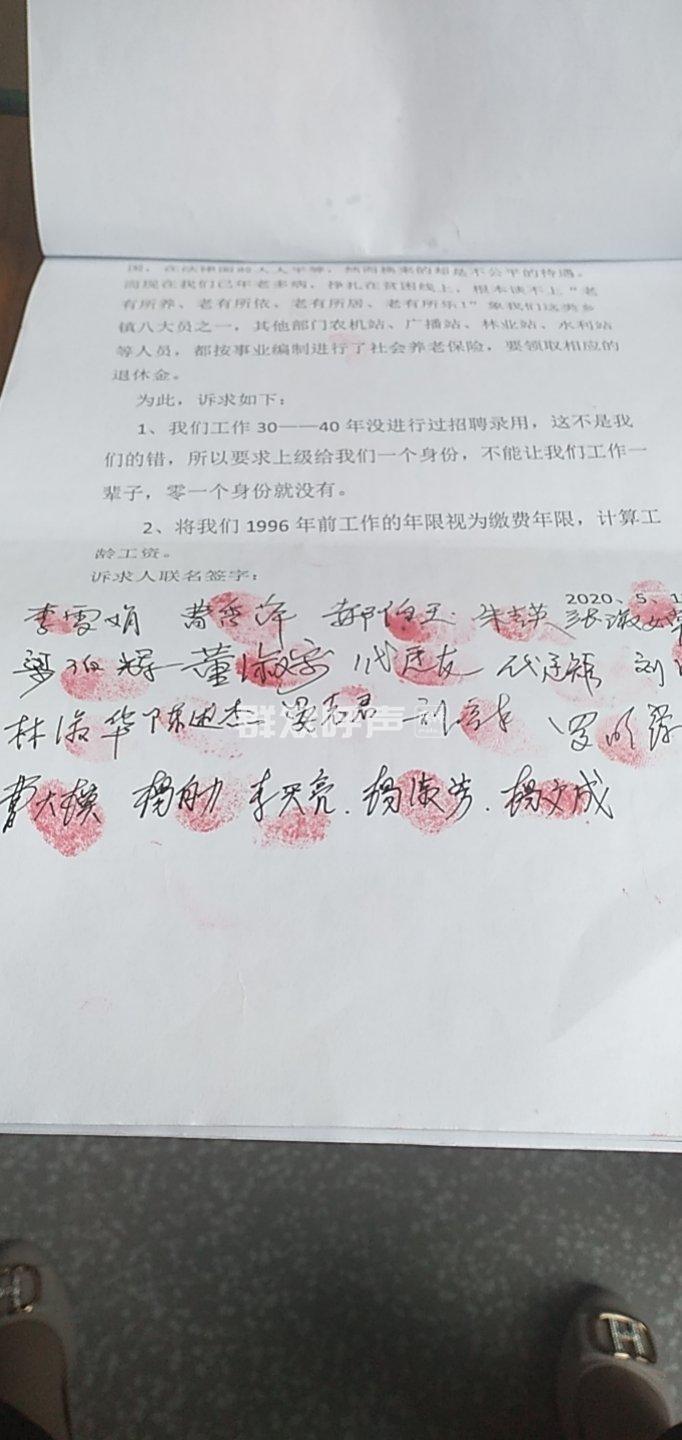 国，在法律面前人人平等，然而换来的却是不公平的待遇。
而现在我们已年老多病，挣扎在贫困线上，根本谈不上“老
有所养、老有所依、老有所居、老有所乐！”象我们这类乡
镇八大员之一，其他部门农机站、广播站、林业站、水利站
等人员，都按事业编制进行了社会养老保险，要领取相应的
退休金。
为此，诉求如下：
1、我们工作 30——40 年没进行过招聘录用，这不是我
们的错，所以要求上级给我们一个身份，不能让我们工作一
辈子，零一个身份就没有。
2、将我们 1996 年前工作的年限视为缴费年限，计算工
龄工资。
诉求人联名签字：
2020、5、1
李雪娟 朱吉英 张淑
董淑 代廷友 代廷 刘
林淑华 陈
群众呼声
杨 李天亮 杨淑芳 杨文成